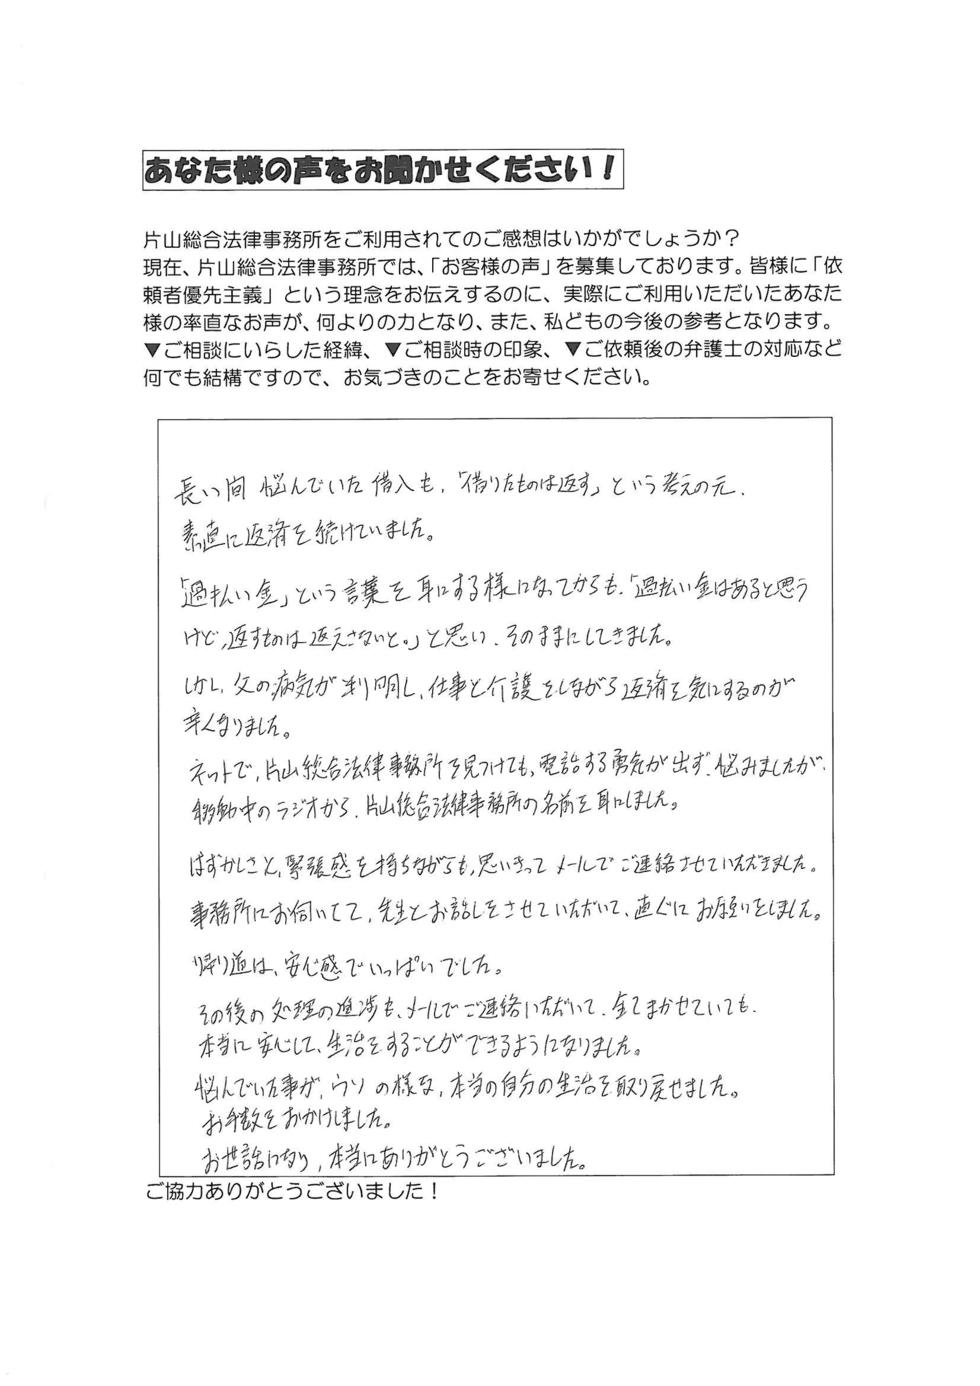 あなた様の声をお聞かせください！
片山総合法律事務所をご利用されてのご感想はいかがでしょうか？
現在、片山総合法律事務所では、「お客様の声」を募集しております。皆様に「依
頼者優先主義」という理念をお伝えするのに、実際にご利用いただいたあなた
様の率直なお声が、何よりの力となり、また、私どもの今後の参考となります。
▼ご相談にいらした経緯、▼ご相談時の印象、▼ご依頼後の弁護士の対応など
何でも結構ですので、お気づきのことをお寄せください。
長い間 悩んでいた借入も、「借りたものは返す」という考えの元、
素直に返済を続けていました。
「過払い金」という言葉を耳にする様になってからも、「過払い金はあると思う
けど、返すものは返えさないと。」と思い、そのままにしてきました。
しかし、父の病気が判明し、仕事と介護をしながら返済を気にするのが
辛くなりました。
ネットで、片山総合法律事務所を見つけても、電話する勇気が出ず、悩みましたが、
移動中のラジオから、片山総合法律事務所の名前を耳にしました。
はずかしさと、緊張感を持ちながらも、思いきってメールでご連絡させていただきました。
事務所にお伺いてて、先生とお話しをさせていただいて、直ぐにお願いをしました。
帰り道は、安心感でいっぱいでした。
その後の処理の進渉も、メールでご連絡いただいて、全てまかせていても、
本当に安心して、生活をすることができるようになりました。
悩んでいた事が、ウソの様な、本当の自分の生活を取り戻せました。
お手数をおかけしました。
お世話になり、本当にありがとうございました。
ご協力ありがとうございました！